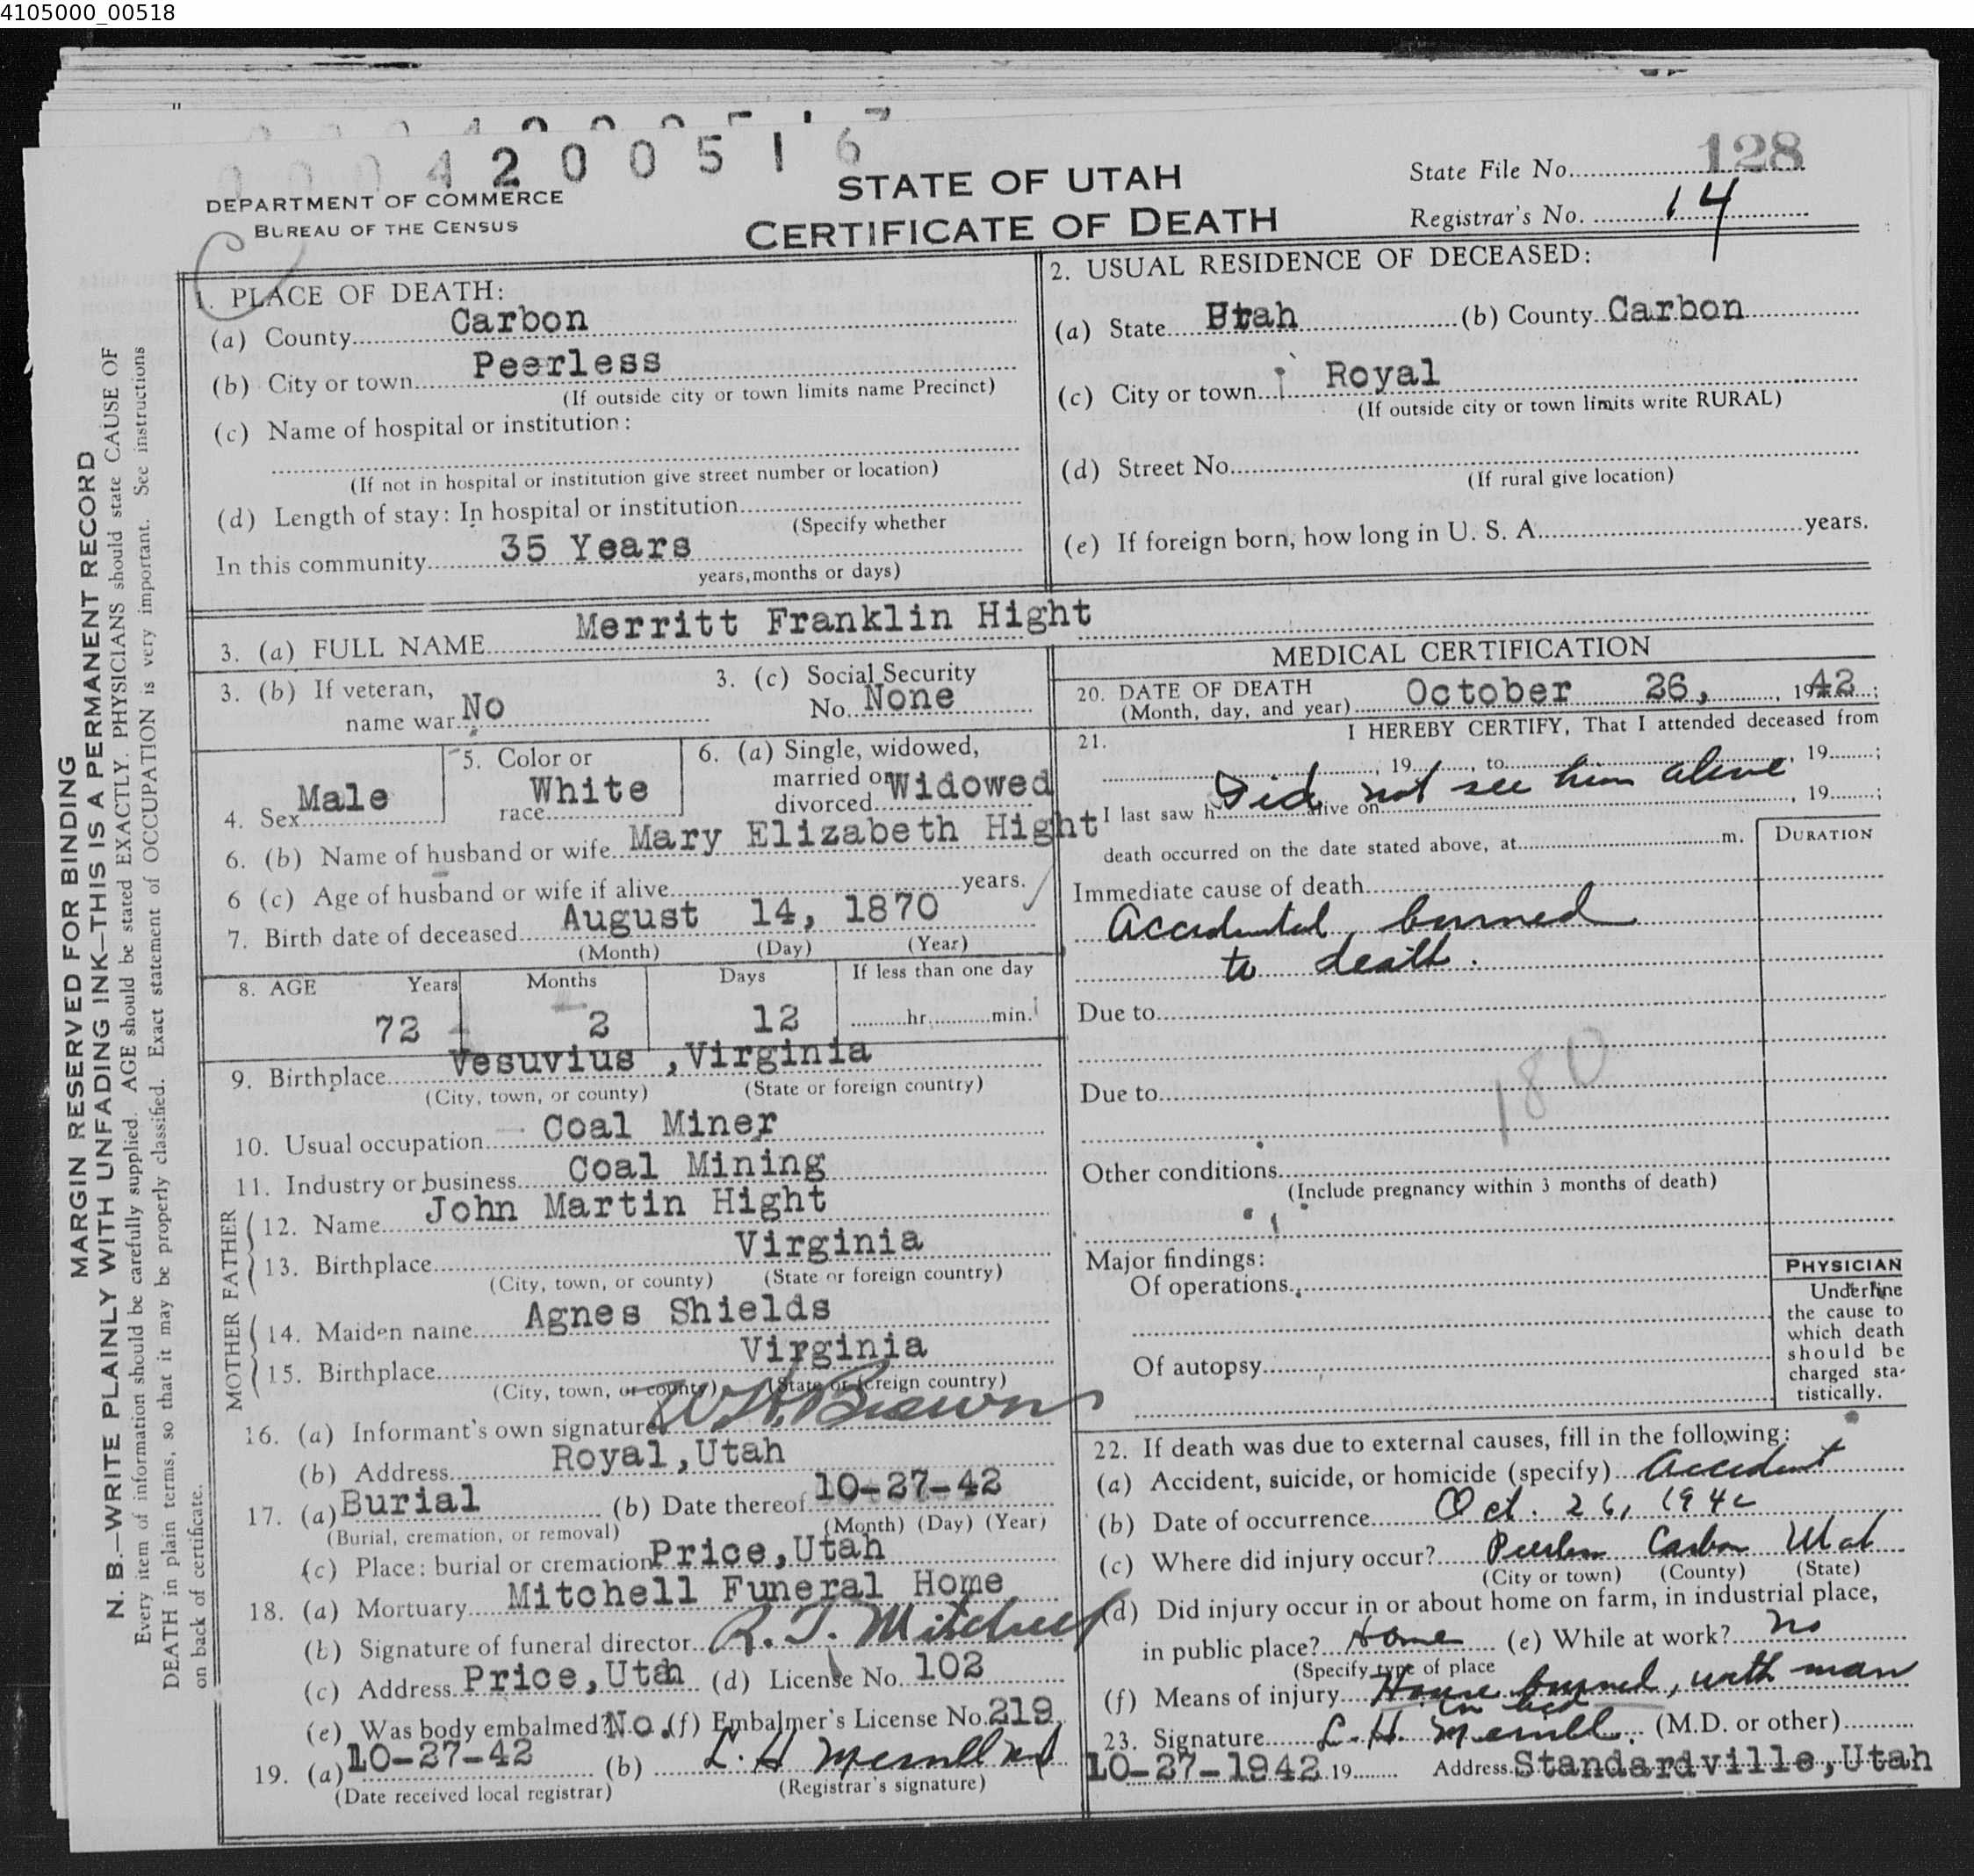 4105000_00518
0004200516
DEPARTMENT OF COMMERCE
BUREAU OF THE CENSUS
STATE OF UTAH
CERTIFICATE OF DEATH
State File No. 128
Registrar's No. 14
MARGIN RESERVED FOR BINDING
N. B.—WRITE PLAINLY WITH UNFADING INK—THIS IS A PERMANENT RECORD
Every item of information should be carefully supplied. AGE should be stated EXACTLY. PHYSICIANS should state CAUSE OF
DEATH in plain terms, so that it may be properly classified. Exact statement of OCCUPATION is very important. See instructions
on back of certificate.
1. PLACE OF DEATH:
(a) County Carbon
(b) City or town Peerless
(If outside city or town limits name Precinct)
(c) Name of hospital or institution:
(If not in hospital or institution give street number or location)
(d) Length of stay: In hospital or institution
(Specify whether
In this community 35 Years
years, months or days)
2. USUAL RESIDENCE OF DECEASED:
(a) State Utah (b) County Carbon
(c) City or town Royal
(If outside city or town limits write RURAL)
(d) Street No.
(If rural give location)
(e) If foreign born, how long in U. S. A. years.
3. (a) FULL NAME Merritt Franklin Hight
3. (b) If veteran,
name war No
3. (c) Social Security
No. None
4. Sex Male
5. Color or
race White
6. (a) Single, widowed,
married or
divorced Widowed
6. (b) Name of husband or wife Mary Elizabeth Hight
6 (c) Age of husband or wife if alive years.
7. Birth date of deceased August 14, 1870
(Month) (Day) (Year)
8. AGE Years Months Days If less than one day
72 2 12 hr. min.
9. Birthplace Vesuvius ,Virginia
(City, town, or county) (State or foreign country)
10. Usual occupation Coal Miner
11. Industry or business Coal Mining
FATHER
12. Name John Martin Hight
13. Birthplace Virginia
(City, town, or county) (State or foreign country)
MOTHER
14. Maiden name Agnes Shields
15. Birthplace Virginia
(City, town, or county) (State or foreign country)
16. (a) Informant's own signature W H. Brown
(b) Address Royal,Utah
17. (a) Burial (b) Date thereof 10-27-42
(Burial, cremation, or removal) (Month) (Day) (Year)
(c) Place: burial or cremation Price,Utah
18. (a) Mortuary Mitchell Funeral Home
(b) Signature of funeral director R. T. Mitchell
(c) Address Price,Utah (d) License No. 102
(e) Was body embalmed? No. (f) Embalmer's License No. 219
19. (a) 10-27-42 (b) L. H Merrill Md
(Date received local registrar) (Registrar's signature)
MEDICAL CERTIFICATION
20. DATE OF DEATH
(Month, day, and year) October 26, 1942;
21. I HEREBY CERTIFY, That I attended deceased from
, 19 , to , 19 ;
I last saw h alive on , 19 ;
Did not see him alive
death occurred on the date stated above, at m.
DURATION
Immediate cause of death
Accidental burned
to death.
Due to
Due to
180
Other conditions
(Include pregnancy within 3 months of death)
Major findings:
Of operations
Of autopsy
PHYSICIAN
Underline
the cause to
which death
should be
charged sta-
tistically.
22. If death was due to external causes, fill in the following:
(a) Accident, suicide, or homicide (specify) Accident
(b) Date of occurrence Oct. 26, 1942
(c) Where did injury occur? Peerless Carbon Utah
(City or town) (County) (State)
(d) Did injury occur in or about home on farm, in industrial place,
in public place? Home (e) While at work? No
(Specify type of place
(f) Means of injury House burned, with man
in bed
23. Signature L. H. Merrill. (M.D. or other)
10-27-1942 19 Address Standardville,Utah